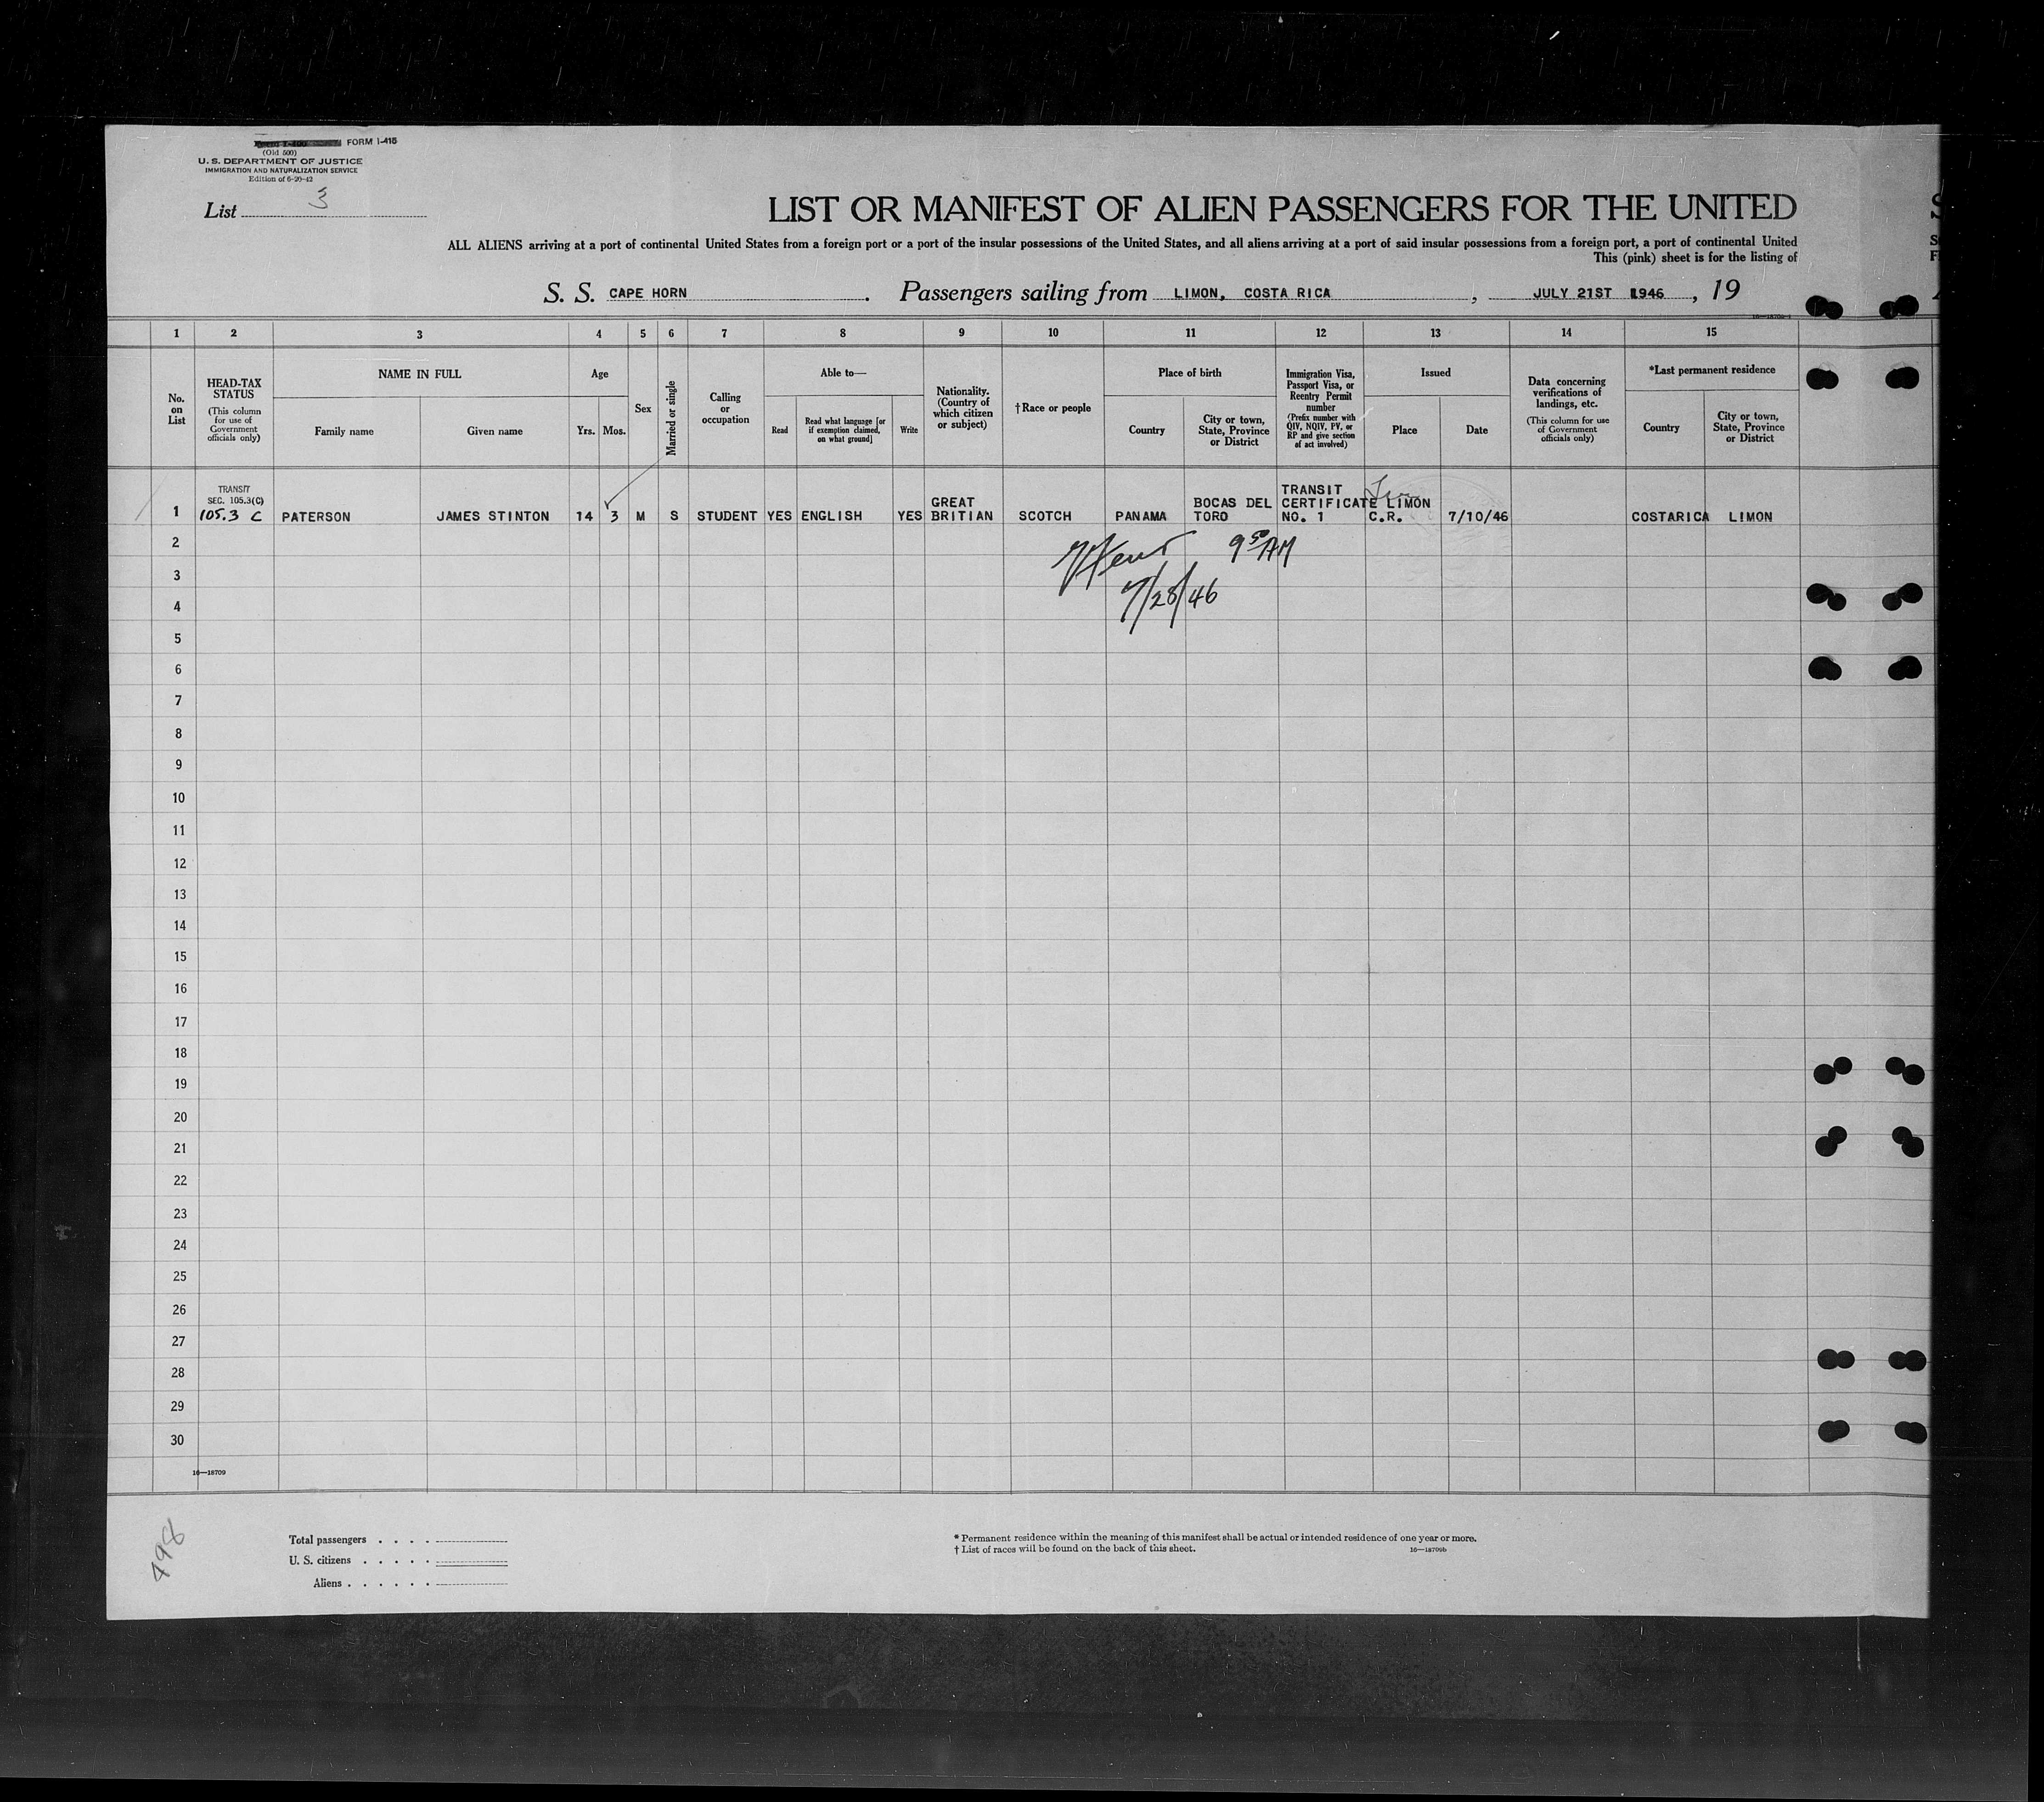 FORM I-415
(Old 500)
U. S. DEPARTMENT OF JUSTICE
IMMIGRATION AND NATURALIZATION SERVICE
Edition of 6-20-42
List 3
LIST OR MANIFEST OF ALIEN PASSENGERS FOR THE UNITED
ALL ALIENS arriving at a port of continental United States from a foreign port or a port of the insular possessions of the United States, and all aliens arriving at a port of said insular possessions from a foreign port, a port of continental United
This (pink) sheet is for the listing of
S. S. CAPE HORN . Passengers sailing from LIMON, COSTA RICA , JULY 21ST 1946 , 19
1 2 3 4 5 6 7 8 9 10 11 12 13 14 15
No. on List
HEAD-TAX STATUS
(This column for use of Government officials only)
NAME IN FULL
Family name
Given name
Age
Yrs.
Mos.
Sex
Married or single
Calling or occupation
Able to—
Read
Read what language [or if exemption claimed, on what ground]
Write
Nationality. (Country of which citizen or subject)
†Race or people
Place of birth
Country
City or town, State, Province or District
Immigration Visa, Passport Visa, or Reentry Permit number
(Prefix number with QIV, NQIV, PV, or RP and give section of act involved)
Issued
Place
Date
Data concerning verifications of landings, etc.
(This column for use of Government officials only)
*Last permanent residence
Country
City or town, State, Province or District
TRANSIT
SEC. 105.3(C)
1 105.3 C PATERSON JAMES STINTON 14 3 M S STUDENT YES ENGLISH YES GREAT BRITIAN SCOTCH PANAMA BOCAS DEL TORO TRANSIT CERTIFICATE NO. 1 LIMON C.R. 7/10/46 COSTARICA LIMON
2
9 50 AM
3
7/28/46
4
5
6
7
8
9
10
11
12
13
14
15
16
17
18
19
20
21
22
23
24
25
26
27
28
29
30
16—18709
498
Total passengers . . . .
U. S. citizens . . . . .
Aliens . . . . . .
* Permanent residence within the meaning of this manifest shall be actual or intended residence of one year or more.
† List of races will be found on the back of this sheet.
16—18709b